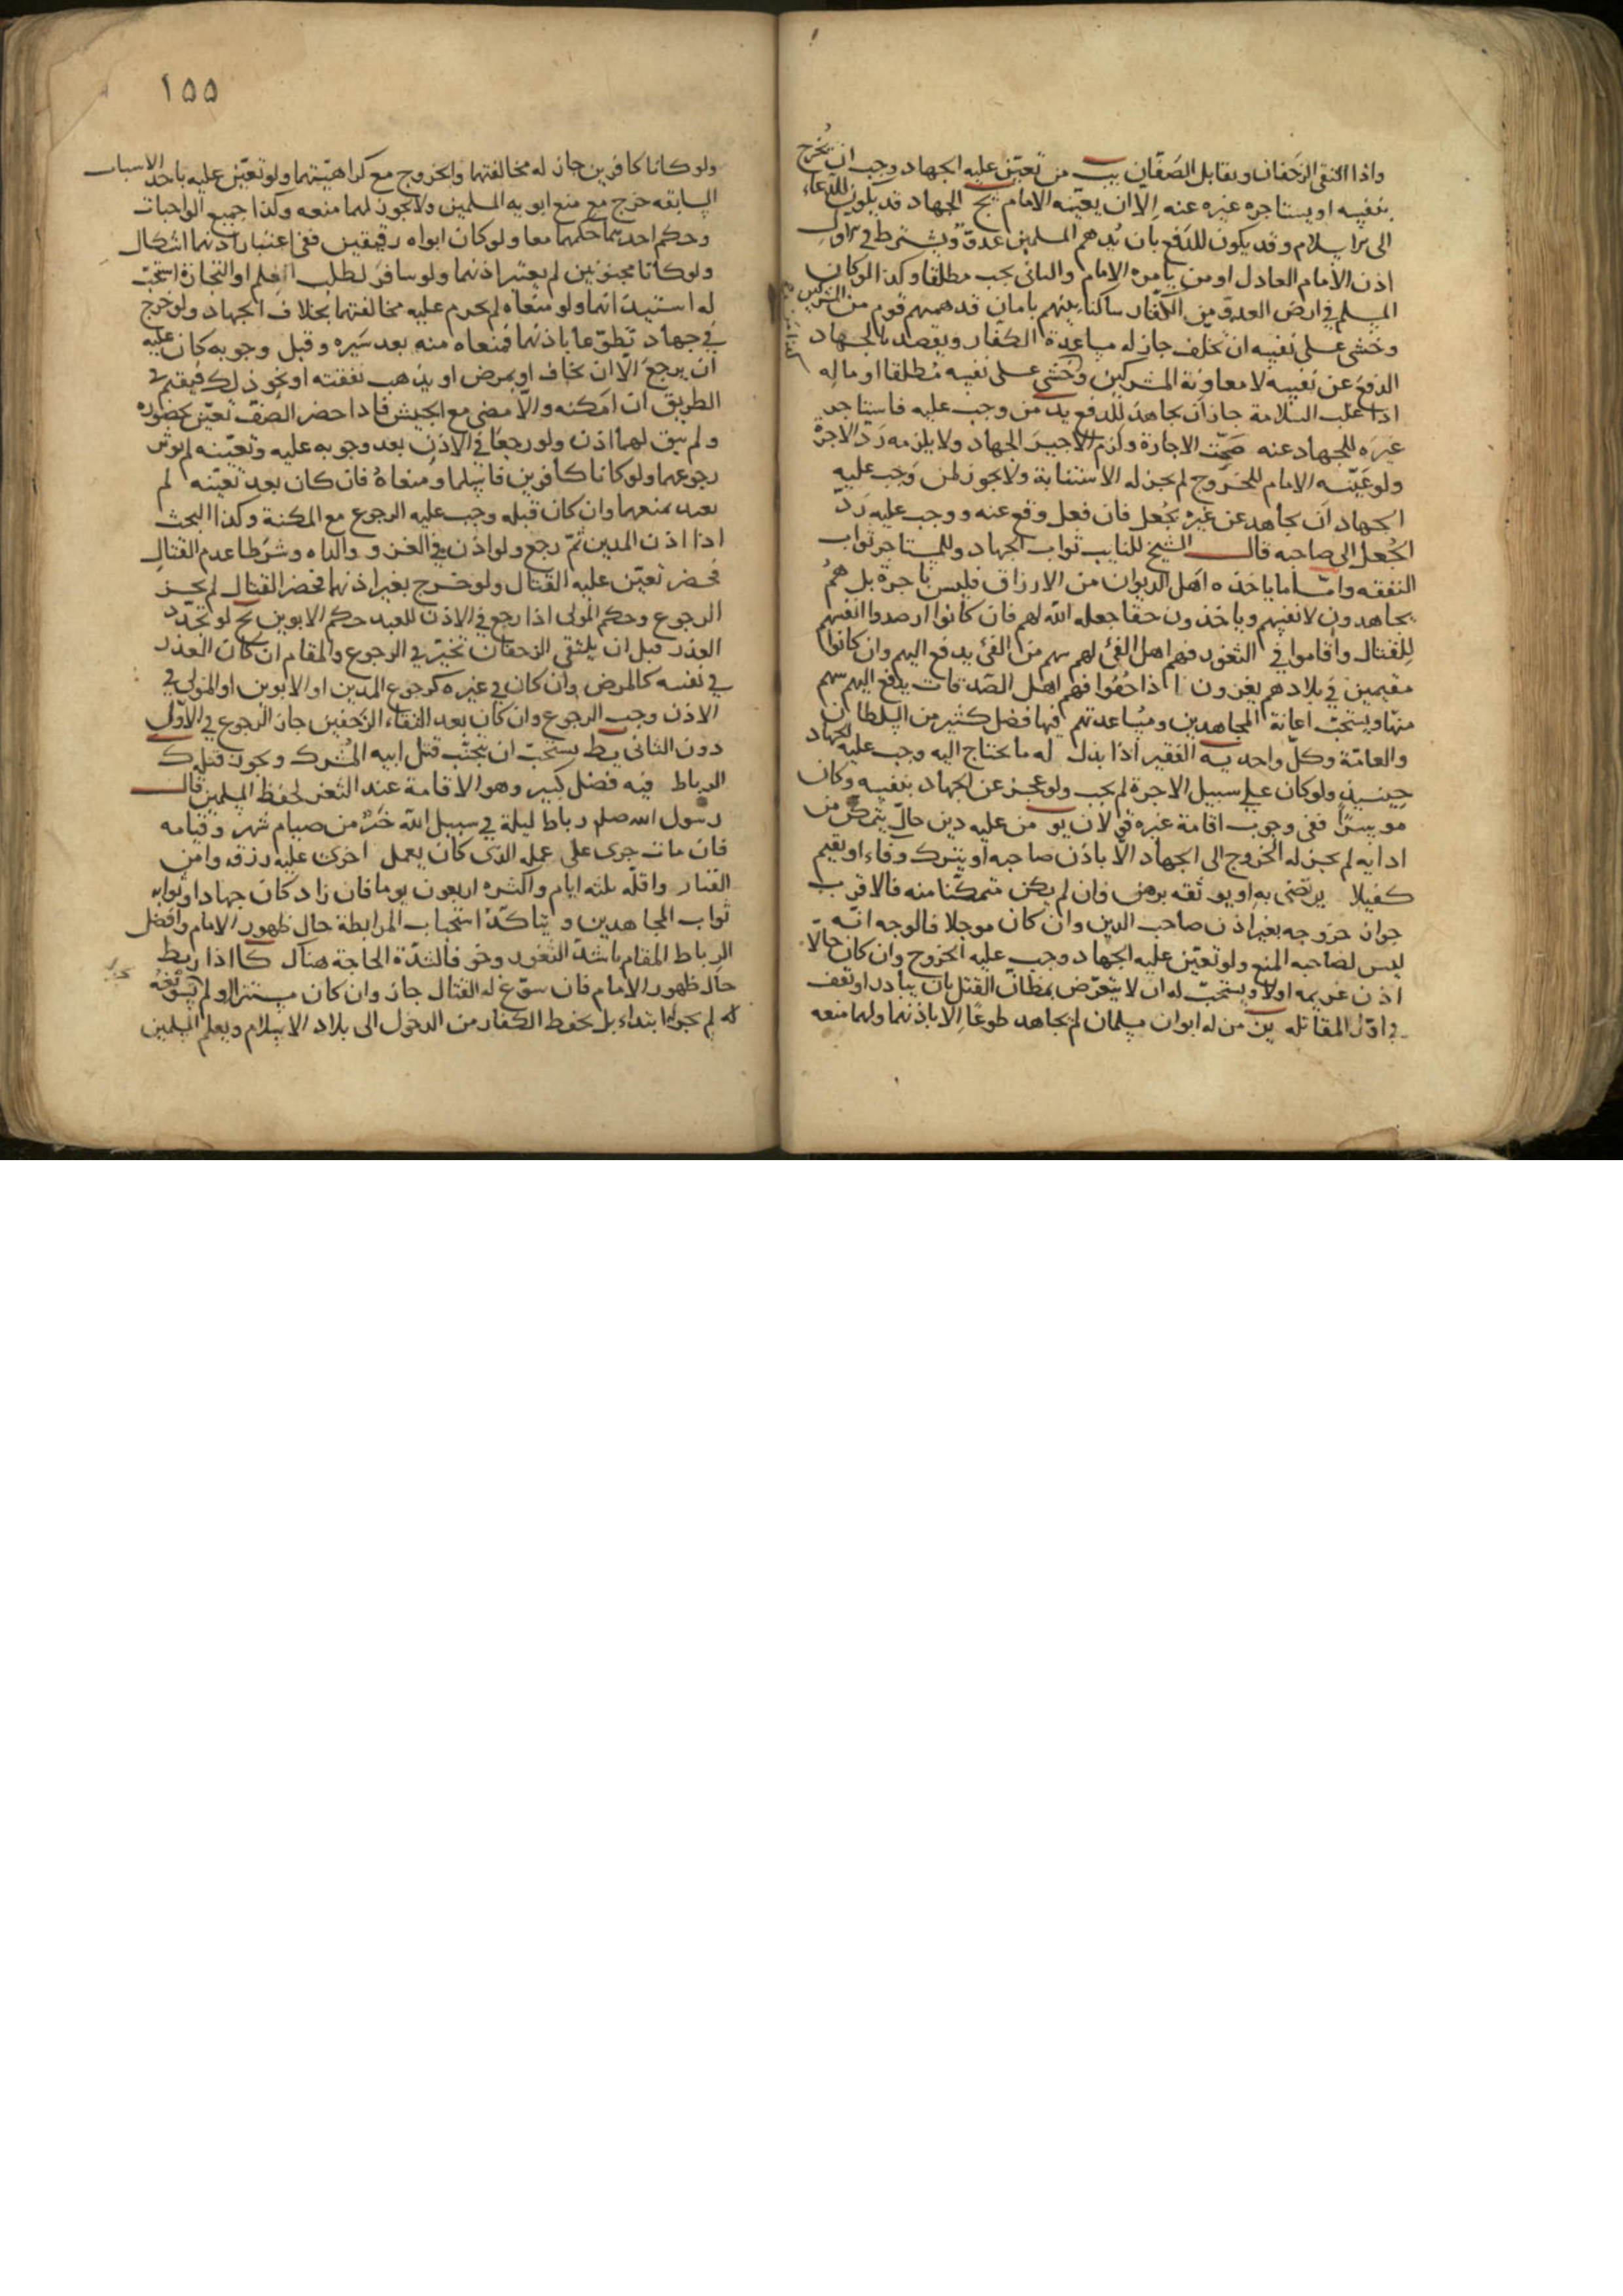 واذا التقى الزحفان وتقابل الصفان يب من تعين عليه الجهاد وجب ان يخرج
بنفسه او يستاجره غيره عنه الا ان يعينه الامام يج الجهاد قد يكون للدعاء
الى الاسلام وقد يكون للدفع بان يدهم المسلمين عدو ويشترط في الاول
اذن الامام العادل او من يامره الامام والثانى يجب مطلقا وكذا لو كان
المسلم في ارض العدو من الكفار ساكنا بينهم بامان قد همهم قوم من المشركين
وخشى على نفسه ان تخلف جاز له مساعدة الكفار ويقصد بالجهاد
الدفع عن نفسه لا معاونة المشركين وخشى على نفسه مطلقا او ماله
اذا غلب السلامة جاز ان يجاهد للدفع يد من وجب عليه فاستاجر
غيره للجهاد عنه صحت الاجارة ولزم الاجير الجهاد ولا يلزمه رد الاجرة
ولو عينه الامام للخروج لم يجز له الاستنابة ولا يجوز لمن وجب عليه
الجهاد ان يجاهد عن غيره بجعل فان فعل وقع عنه ووجب عليه رد
الجعل الى صاحبه قال الشيخ للنايب ثواب الجهاد وللمستاجر ثواب
النفقه واما ما ياخذه اهل الديوان من الارزاق فليس باجرة بل هم
يجاهدون لانفسهم وياخذون حقا جعله الله لهم فان كانوا ارصدوا انفسهم
للقتال واقاموا في الثغور فهم اهل الفئ لهم سهم من الفئ يدفع اليهم وان كانوا
مقيمين في بلادهم يغزون اذا خفوا فهم اهل الصدقات يدفع اليهم سهم
منها ويستحب اعانة المجاهدين ومساعدتهم فيها فضل كثير من السلطان
والعامة وكل واحد يه الفقير اذا بذل له ما يحتاج اليه وجب عليه الجهاد
حينئذ ولو كان على سبيل الاجرة لم يجب ولو عجز عن الجهاد بنفسه وكان
موسرا ففى وجوب اقامة غيره قولان يو من عليه دين حال يتمكن من
ادايه لم يجز له الخروج الى الجهاد الا باذن صاحبه او يترك وفاء او يقيم
كفيلا يرتضى به او يوثقه برهن وان لم يكن متمكنا منه فالاقرب
جواز خروجه بغير اذن صاحب الدين وان كان موجلا فالوجه انه
ليس لصاحبه المنع ولو تعين عليه الجهاد وجب عليه الخروج وان كان حالا
اذن غريمه اولا ويستحب له ان لا يتعرض بمظان القتل بان يبادر او تقف
في اول المقاتله يز من له ابوان مسلمان لم يجاهد طوعا الا باذنهما ولهما منعه
١٥٥
ولو كانا كافرين جاز له مخالفتهما والخروج مع كراهيتهما ولو تعين عليه باحد الاسباب
السابقه خرج مع منع ابويه المسلمين ولا يجوز لهما منعه وكذا جميع الواجبات
وحكم احدهما حكمهما معا ولو كان ابواه رقيقين ففى اعتبار اذنهما اشكال
ولو كانا مجنونين لم يعتبر اذنهما ولو سافر لطلب العلم او التجارة استحب
له استيذانهما ولو منعاه لم يحرم عليه مخالفتهما بخلاف الجهاد ولو خرج
في جهاد تطوعا باذنهما فمنعاه منه بعد سيره وقبل وجوبه كان عليه
ان يرجع الا ان يخاف او يمرض او يذهب نفقته او نحو ذلك فيقيم في
الطريق ان امكنه والا مضى مع الجيش فاذا حضر الصف تعين بحضوره
ولم يبق لهما اذن ولو رجعا في الاذن بعد وجوبه عليه وتعينه لم يوثر
رجوعهما ولو كانا كافرين فاسلما ومنعاه فان كان بعد تعينه لم
يعبد بمنعهما وان كان قبله وجب عليه الرجوع مع المكنة وكذا البحث
اذا اذن المدين ثم رجع ولو اذن في الغزو والداه وشرطا عدم القتال
فحضر تعين عليه القتال ولو خرج بغير اذنهما فحضر القتال لم يجز
الرجوع وحكم المولى اذا رجع في الاذن للعبد حكم الابوين يح لو تجدد
العذر قبل ان يلتقى الزحفان تخير في الرجوع والمقام ان كان العذر
في نفسه كالمرض وان كان في غيره كرجوع المدين او الابوين او المولى في
الاذن وجب الرجوع وان كان بعد التقاء الزحفين جاز الرجوع في الاول
دون الثانى يط يستحب ان يتجنب قتل ابيه المشرك ويجوز قتله ك
الرباط فيه فضل كبير وهو الاقامة عند الثغر لحفظ المسلمين قال
رسول الله صلم رباط ليلة في سبيل الله خير من صيام شهر وقيامه
فان مات جرى على عمله الذى كان يعمل اجرى عليه رزقه وامن
الفتان واقله ثلثه ايام واكثره اربعون يوما فان زاد كان جهادا وثوابه
ثواب المجاهدين ويتاكد استحباب المرابطة حال ظهور الامام وافضل
الرباط المقام باشد الثغور وخوفا لشدة الحاجة هناك كا اذا ربط
حال ظهور الامام فان سوغ له القتال جاز وان كان مستترا او لم يسوغه
له لم يجز له ابتداء بل يحفظ الكفار من الدخول الى بلاد الاسلام ويعلم المسلمين